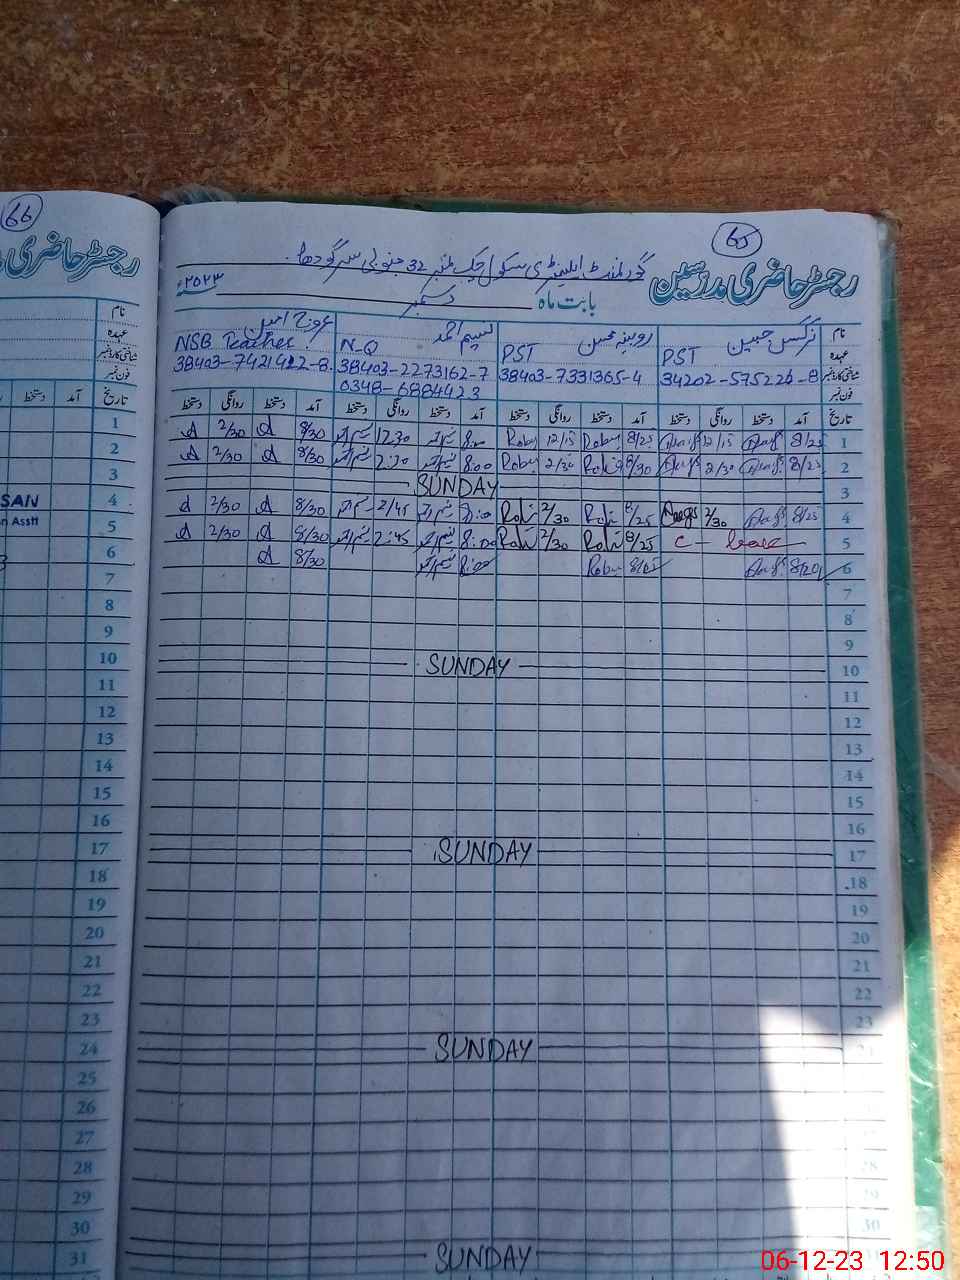 66
65
رجسٹر حاضری مدرسین
گورنمنٹ ایلیمنٹری سکول چک نمبر 32 جنوبی سرگودھا
بابت ماہ دسمبر ۲۰۲۳ء
رجسٹر حاضری
نام نرگس جبین روبینہ محسن نسیم احمد عروج امین
عہدہ PST PST N-Q NSB Teacher
شناختی کارڈ نمبر 34202-575226-8 38403-7331365-4 38403-2273162-7 38403-7421922-8
فون نمبر 0348-6884423
تاریخ آمد دستخط روانگی دستخط آمد دستخط روانگی دستخط آمد دستخط روانگی دستخط آمد دستخط روانگی دستخط
1 8/25 12/15 8/25 12/15 8:00 12:30 8/30 2/30
2 8/25 2/30 8/30 2/30 8:00 2:30 8/30 2/30
3 SUNDAY
4 8/25 2/30 8/25 2/30 8:00 2/45 8/30 2/30
5 C - leave 8/25 2/30 8:00 2:45 8/30 2/30
6 8/20 8:00 8/30
7
8
9
10 SUNDAY
11
12
13
14
15
16
17 SUNDAY
18
19
20
21
22
23
24 SUNDAY
25
26
27
28
29
30
31 SUNDAY
نام
عہدہ
شناختی کارڈ نمبر
فون نمبر
تاریخ آمد دستخط
1
2
3
4 SAN
5 n Asstt
6
7
8
9
10
11
12
13
14
15
16
17
18
19
20
21
22
23
24
25
26
27
28
29
30
31
06-12-23 12:50